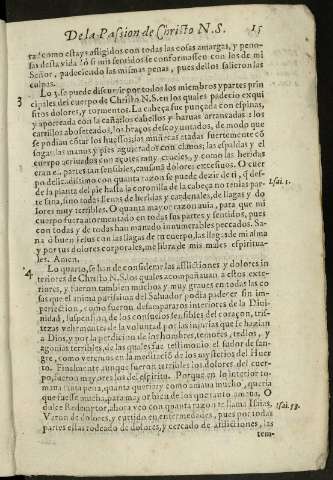 De la Passion de Christo N. S. 15
ra? como estays afligidos con todas las cosas amargas, y peno-
sas desta vida? ò si mis sentidos se conformassen con los de mi
Señor, padeciendo las mismas penas, pues dellos salieron las
culpas.
3 Lo 3. se puede discurrir por todos los miembros y partes prin
cipales del cuerpo de Christo N. S. en los quales padecio exqui
sitos dolores, y tormentos. La cabeça fue punçada con espinas,
y aporreada con la caña: los cabellos y barbas arrancadas: los
carrillos abofeteados, los braços descoyuntados, de modo que
se podian côtar los huessos: las muñecas atadas fuertemente cõ
sogas: las manos y pies agujerados con clauos: las espaldas y el
cuerpo açotados con açotes muy crueles, y como las heridas
eran en partes tan sensibles, causauã dolores excessiuos. O cuer
po delicadissimo con quanta razon se puede dezir de ti, q̃ des-
de la planta del pie hasta la coronilla de la cabeça no tenias par- Isai. 1.
te sana, sino todo llenos de heridas y cardenales, de llagas y do
lores muy terribles. O quanta mayor razon auia, para que mi
cuerpo fuera atormentado en todas sus partes y sentidos, pues
con todas y de todas han manado innumerables peccados. Sa-
na ò buen Iesus con las llagas de tu cuerpo, las llagas de mi alma
y por tus dolores corporales, me libra de mis males espiritua-
les. Amen.
4 Lo quarto, se han de considerar las aflicciones y dolores in-
teriores de Christo N. S. los quales acompañauan à estos exte-
riores, y fueron tambien muchos y muy graues en todas las co
sas que el anima santissima del Saluador podia padecer sin im-
perfeccion, como fueron desamparos interiores de la Diui-
nidad, suspension de los consuelos sensibles del coraçon, tris-
tezas vehementes de la voluntad por las injurias que se hazian
a Dios, y por la perdicion de los hombres, temores, tedios, y
agonias terribles, de las quales fue testimonio el sudor de san-
gre, como veremos en la meditaciõ de los mysterios del Huer
to. Finalmente aunque fueron terribles los dolores del cuer-
po, fueron mayores los del espiritu. Porque en lo interior to-
maua tanta pena, quanta queria: y como amaua mucho, queria
que fuesse mucha, para mayor bien de los que tanto amaua. O
dulce Redemptor, ahora veo con quanta razon te llama Isaias,
Varon de dolores, y curtido en enfermedades, pues por todas Isai. 53.
partes estas rodeado de dolores, y cercado de aflicciones, las
tem-